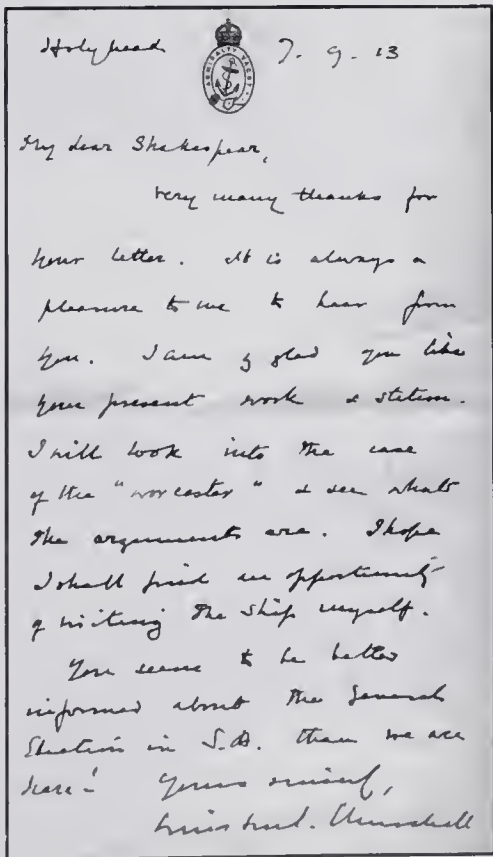 Holyhead 7. 9. 13
ADMIRALTY YACHT
My dear Shakespear,
Very many thanks for
your letter. It is always a
pleasure to me to hear from
you. I am glad you like
your present work & station.
I will look into the case
of the "Worcester" & see what
the arguments are. I hope
I shall find an opportunity
of visiting the ship myself.
You seem to be better
informed about the General
Election in S.A. than we are
here! Yours sincerely,
Winston S. Churchill